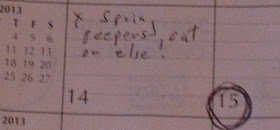 2013
T F S
4 5 6
11 12 13
18 19 20
25 26 27
x Sprin
peepers out
on else!
14
15
2013